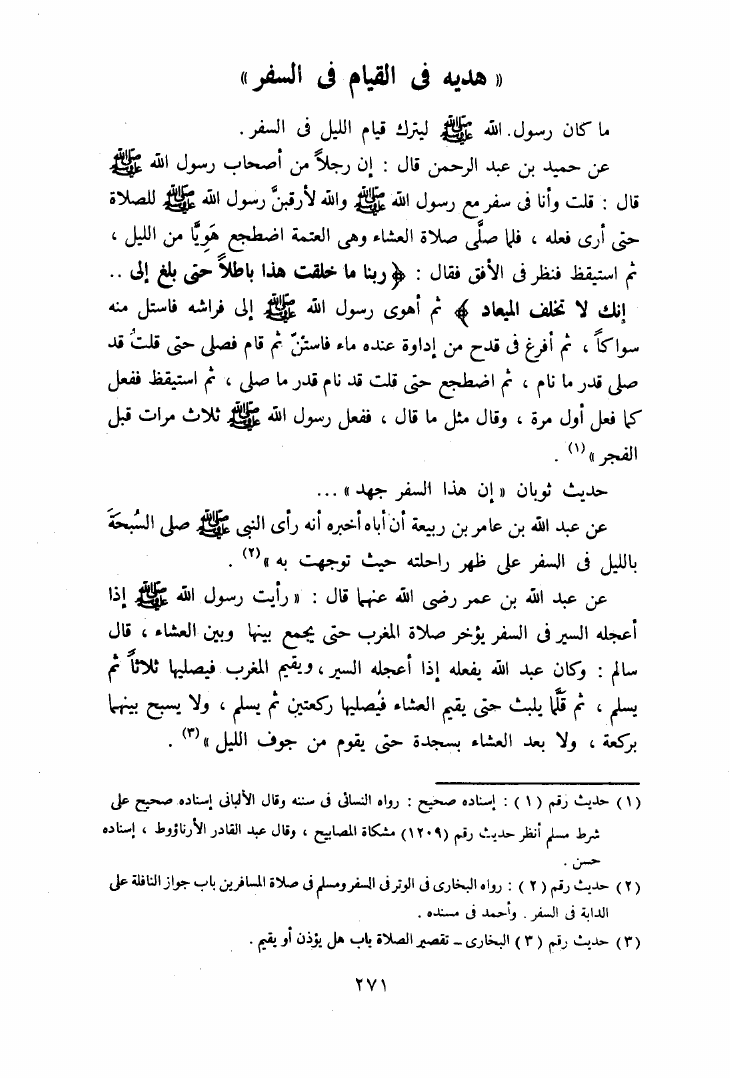 « هديه فى القيام فى السفر »
ما كان رسول . الله ﷺ ليترك قيام الليل فى السفر .
عن حميد بن عبد الرحمن قال : إن رجلاً من أصحاب رسول الله ﷺ
قال : قلت وأنا فى سفر مع رسول الله ﷺ والله لأرقبنَّ رسول الله ﷺ للصلاة
حتى أرى فعله ، فلما صلَّى صلاة العشاء وهى العتمة اضطجع هَوِيًّا من الليل ،
ثم استيقظ فنظر فى الأفق فقال : ﴿ ربنا ما خلقت هذا باطلاً حتى بلغ إلى ..
إنك لا تخلف الميعاد ﴾ ثم أهوى رسول الله ﷺ إلى فراشه فاستل منه
سواكاً ، ثم أفرغ فى قدح من إداوة عنده ماء فاستنّ ثم قام فصلى حتى قلتُ قد
صلى قدر ما نام ، ثم اضطجع حتى قلت قد نام قدر ما صلى ، ثم استيقظ ففعل
كما فعل أول مرة ، وقال مثل ما قال ، ففعل رسول الله ﷺ ثلاث مرات قبل
الفجر »(١) .
حديث ثوبان « إن هذا السفر جهد » ...
عن عبد الله بن عامر بن ربيعة أن أباه أخبره أنه رأى النبى ﷺ صلى السُّبحَةَ
بالليل فى السفر على ظهر راحلته حيث توجهت به »(٢) .
عن عبد الله بن عمر رضى الله عنهما قال : « رأيت رسول الله ﷺ إذا
أعجله السير فى السفر يؤخر صلاة المغرب حتى يجمع بينها وبين العشاء ، قال
سالم : وكان عبد الله يفعله إذا أعجله السير ، ويقيم المغرب فيصليها ثلاثاً ثم
يسلم ، ثم قَلَّما يلبث حتى يقيم العشاء فيُصليها ركعتين ثم يسلم ، ولا يسبح بينهما
بركعة ، ولا بعد العشاء بسجدة حتى يقوم من جوف الليل »(٣) .
(١) حديث رقم ( ١ ) : إسناده صحيح : رواه النسائى فى سننه وقال الألبانى إسناده صحيح على
شرط مسلم أنظر حديث رقم (١٢٠٩) مشكاة المصابيح ، وقال عبد القادر الأرناؤوط ، إسناده
حسن .
(٢) حديث رقم ( ٢ ) : رواه البخارى فى الوتر فى السفر ومسلم فى صلاة المسافرين باب جواز النافلة على
الدابة فى السفر . وأحمد فى مسنده .
(٣) حديث رقم ( ٣ ) البخارى – تقصير الصلاة باب هل يؤذن أو يقيم .
٢٧١